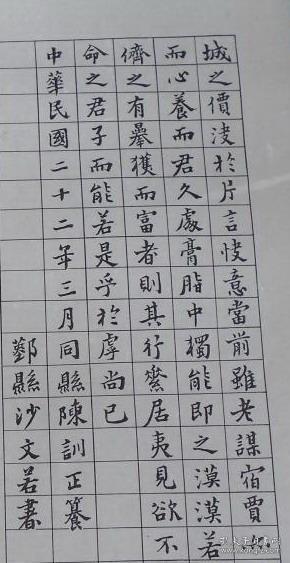 城之價決於片言快意當前雖老謀宿賈
而心養而君久處膏脂中獨能即之漠漠若
儕之有舉獲而富者則其行鮝居夷見欲不
命之君子而能若是乎於虖尚已
中華民國二十二年三月同縣陳訓正篹
鄞縣沙文若書